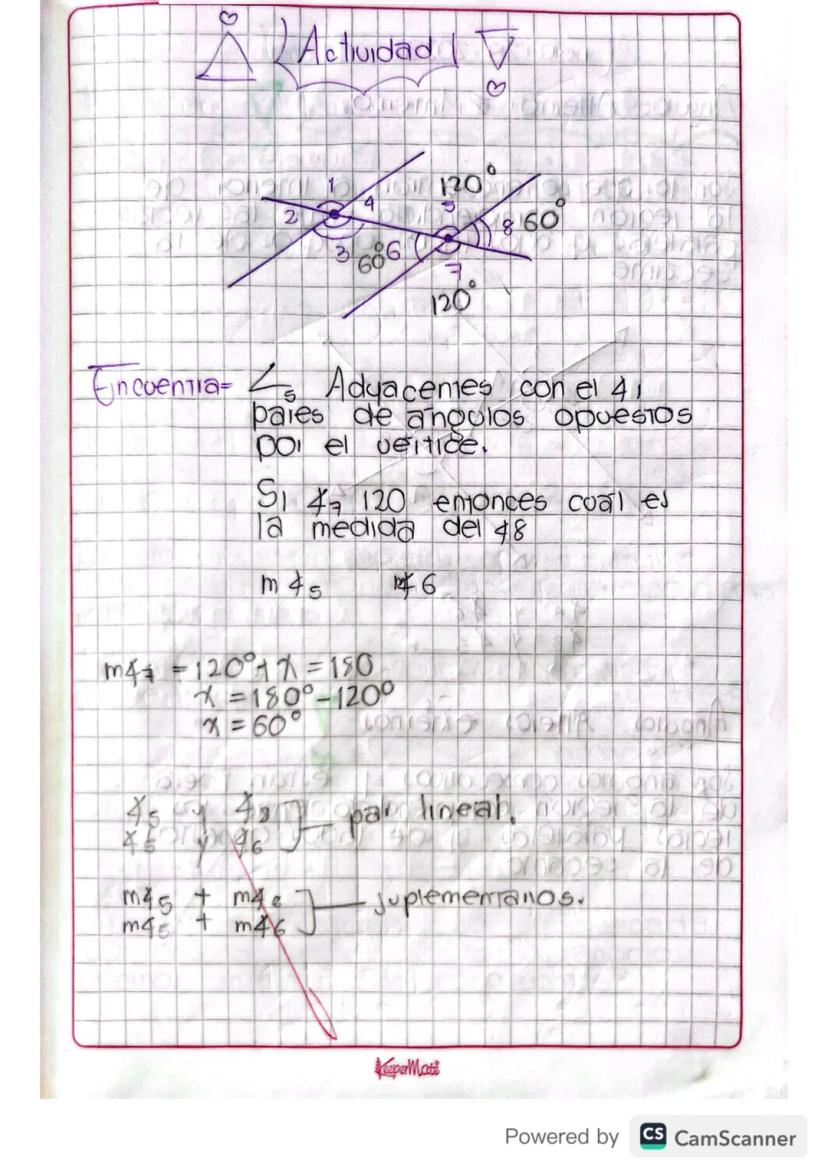 ¡Actividad!
1
120°
2
4
5
8 60°
3
60° 6
7
120°
Encuentra= ∠5 Adyacentes con el ∡1
pares de ángulos opuestos
por el vértice.
Si ∡7 120 entonces cual es
la medida del ∡8
m∡5 m∡6
m∡7 = 120° + x = 180
x = 180° - 120°
x = 60°
∡5 y ∡8
∡5 y ∡6
par lineal,
m∡5 + m∡8
m∡5 + m∡6
suplementarios.
KeeperMate
Powered by CS CamScanner